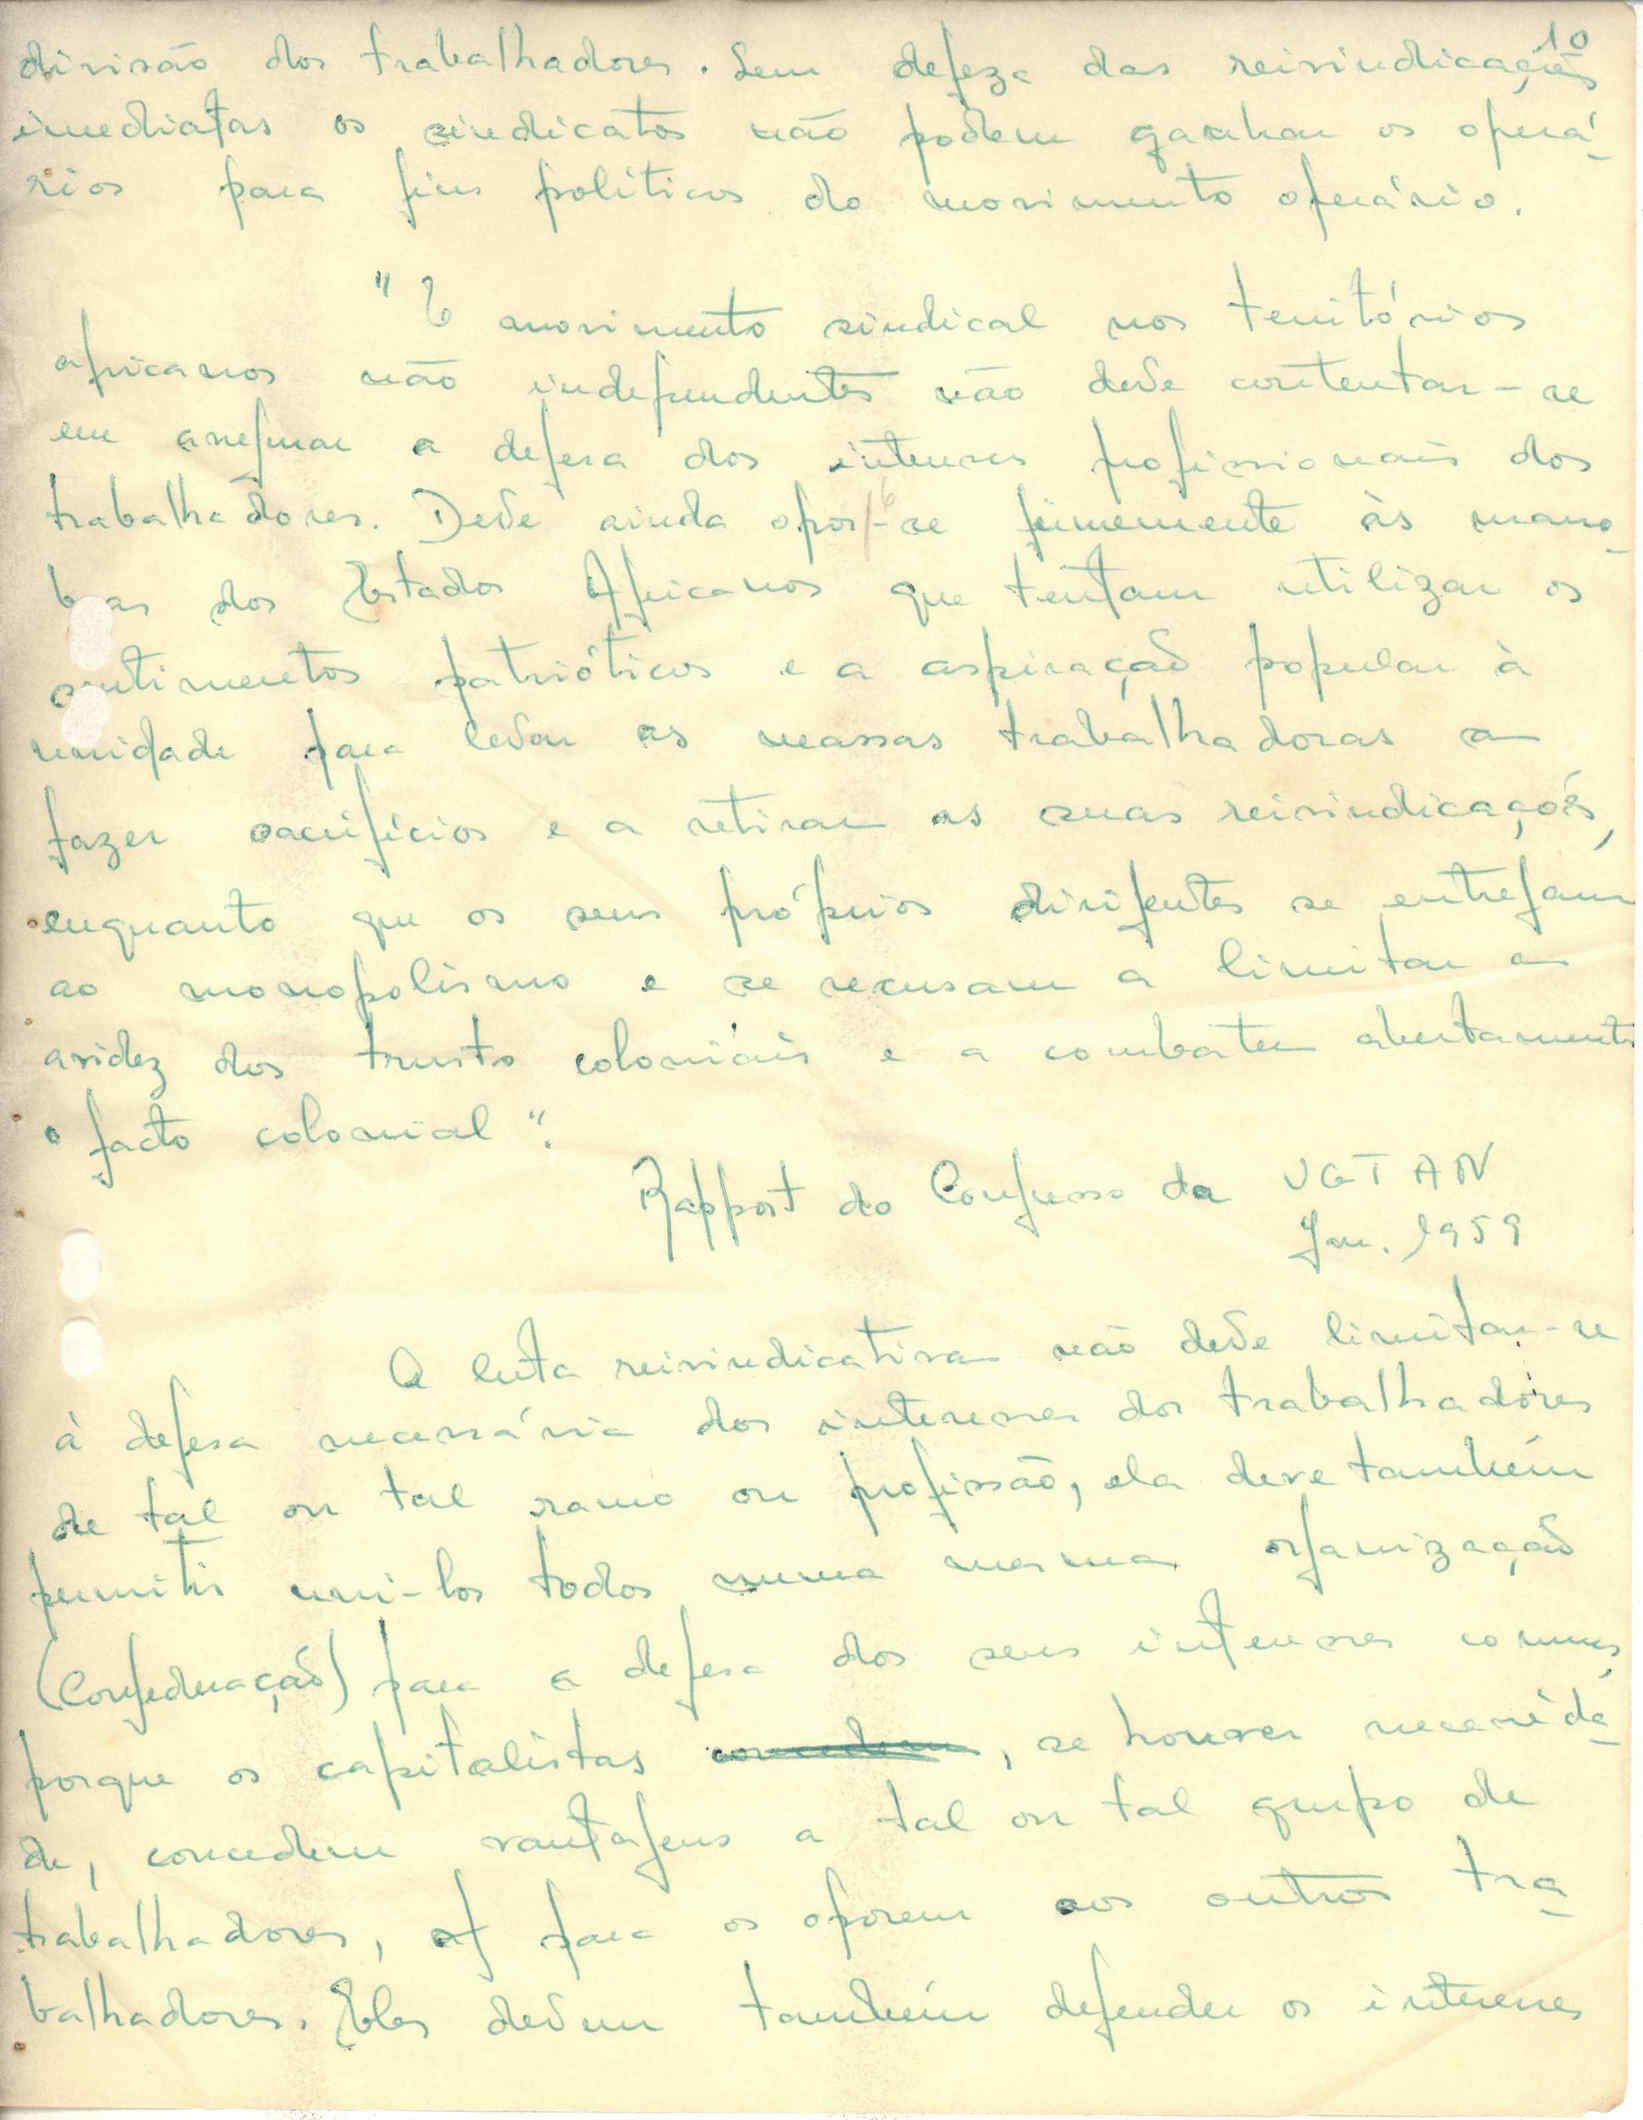 10
divisão dos trabalhadores. Sem defeza das reivindicações
imediatas os sindicatos não podem ganhar os operá-
rios para fins políticos do movimento operário.
"O movimento sindical nos territórios
africanos não independentes não deve contentar-se
em assegurar a defesa dos interesses profissionais dos
trabalhadores. Deve ainda opor-se firmemente às mano-
bras dos Estados Africanos que tentam utilizar os
sentimentos patrióticos e a aspiração popular à
unidade para levar as massas trabalhadoras a
fazer sacrifícios e a retirar as suas reivindicações,
enquanto que os seus próprios dirigentes se entregam
ao monopolismo e se recusam a limitar a
avidez dos trusts coloniais e a combater abertamente
o facto colonial".
Rapport do Congresso da UGTAN
Jan. 1959
A luta reivindicativa não deve limitar-se
à defesa necessária dos interesses dos trabalhadores
de tal ou tal ramo ou profissão, ela deve também
permitir uni-los todos numa mesma organização
(Confederação) para a defesa dos seus interesses comuns,
porque os capitalistas concedem, se houver necessida-
de, concedem vantagens a tal ou tal grupo de
trabalhadores, para os oporem aos outros tra-
balhadores. Eles devem também defender os interesses